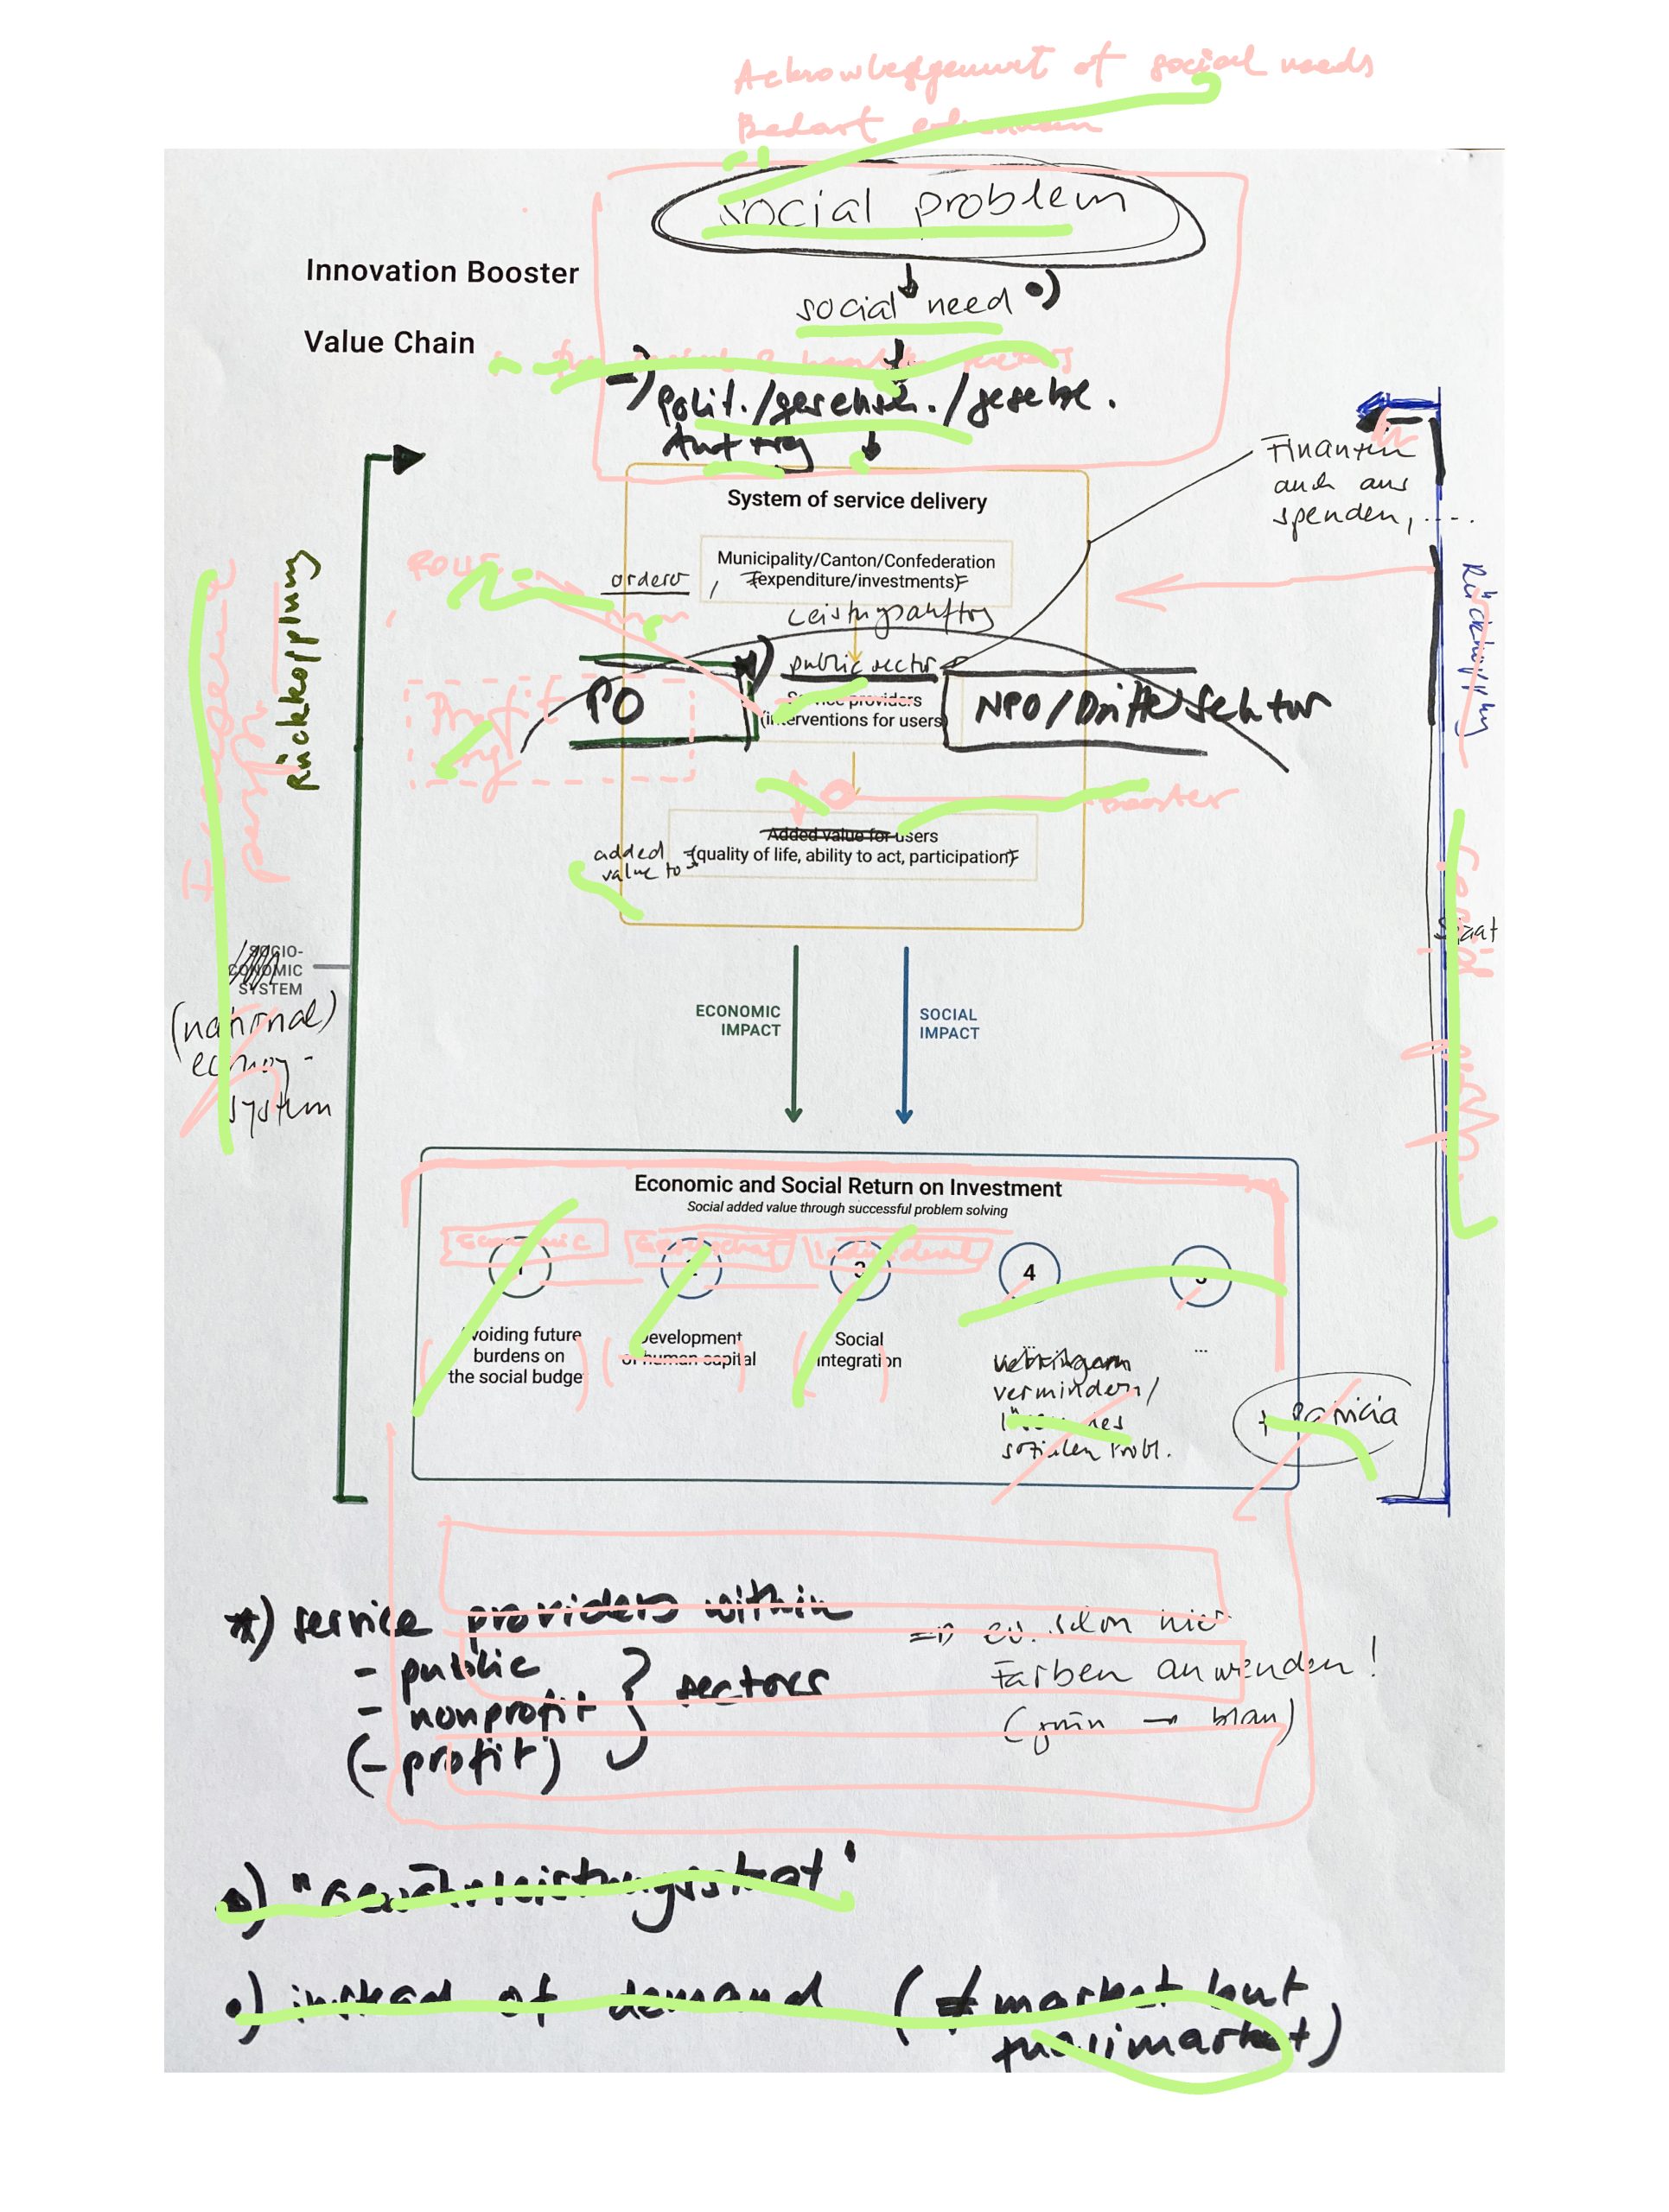 Acknowledgement of social needs
Bedarf
social problem
Innovation Booster
social need •)
Value Chain
Polit./gesellsch./gesetzl.
Auftrag
Finanzen
auch aus
spenden, ....
System of service delivery
Municipality/Canton/Confederation
(expenditure/investments)
orderer
Leistungsauftrag
Rückkopplung
Rückkopplung
public sector
Service providers
(interventions for users)
PO
NPO/Dritte Sektor
Profit
booster
Added value for users
added
value to
(quality of life, ability to act, participation)
SOCIO-
ECONOMIC
SYSTEM
(national)
system
Staat
Social
ECONOMIC
IMPACT
SOCIAL
IMPACT
Economic and Social Return on Investment
Social added value through successful problem solving
Economic
Individual
1
2
3
4
5
Avoiding future
burdens on
the social budget
Development
of human capital
Social
integration
...
vermindern/
lösen des
sozialen Probl.
*) service providers within
- public
- nonprofit
(- profit)
sectors
=> ev. schon hier
Farben anwenden!
(grün → blau)
"Gewährleistungsstaat"
•) instead of demand (≠ market but
quasimarket)